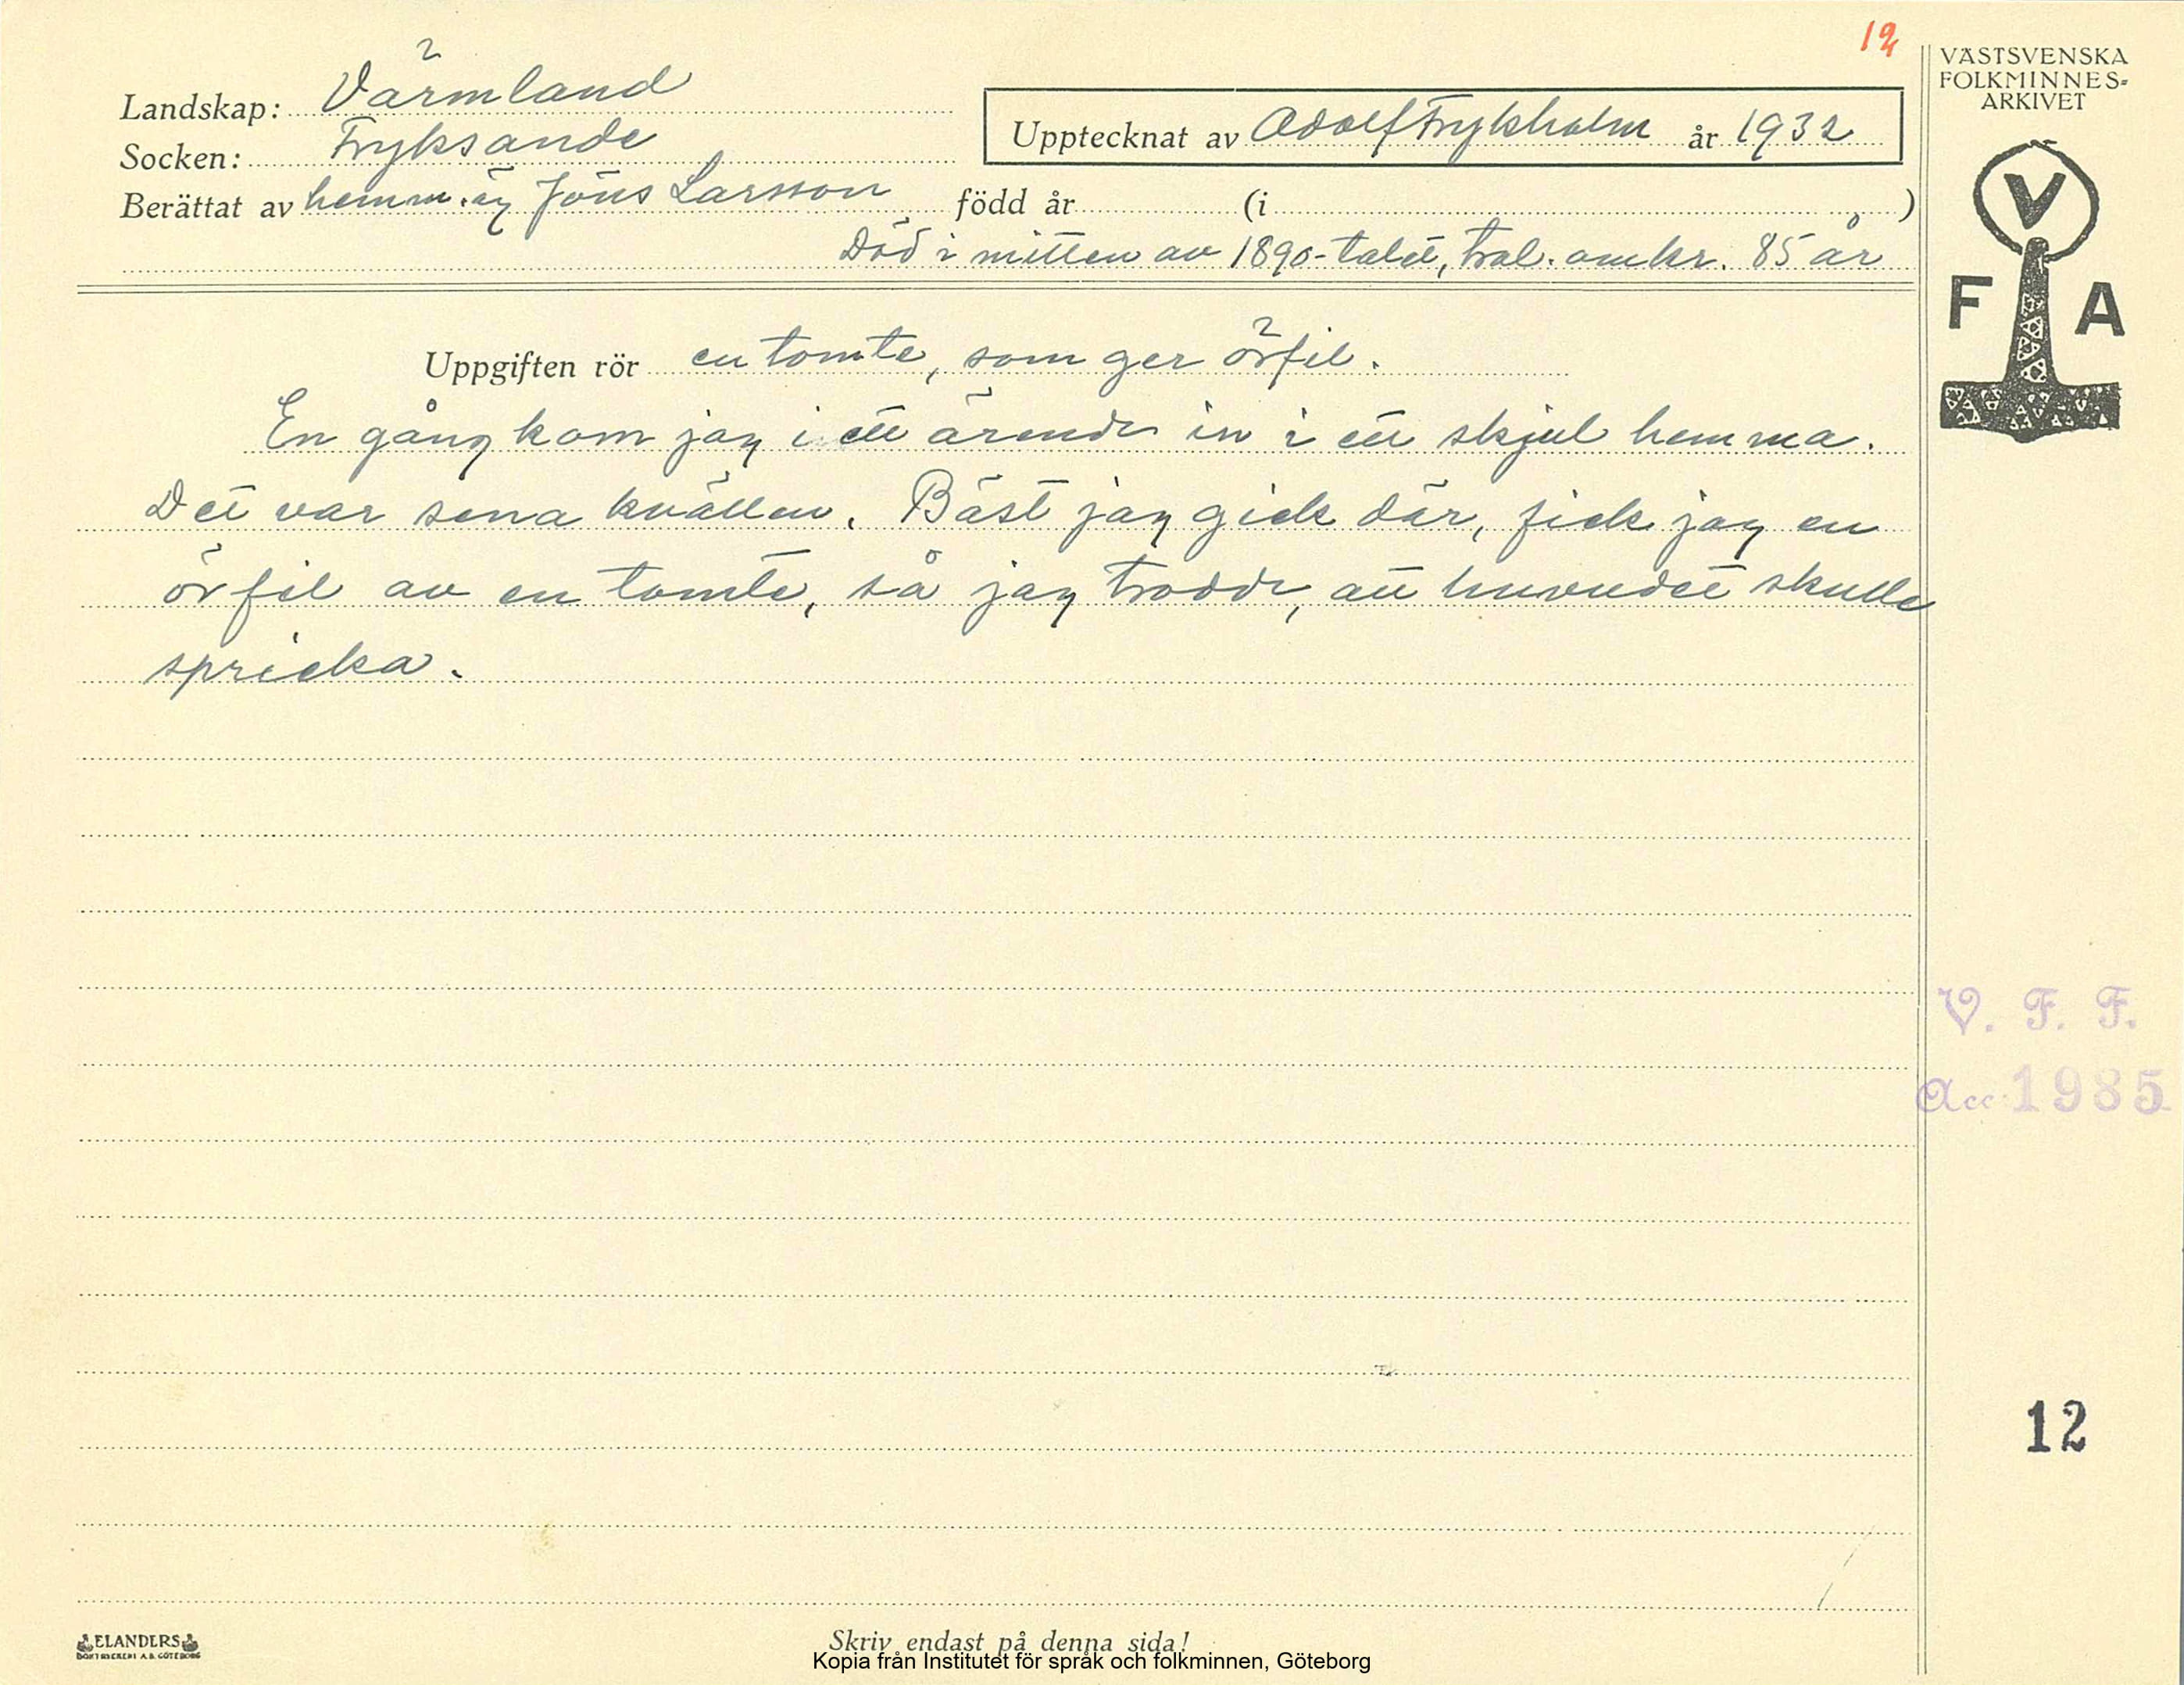 12
VÄSTSVENSKA
FOLKMINNES-
ARKIVET
Landskap: Värmland
Socken: Fryksande
Upptecknat av Adolf Frykholm år 1932
Berättat av hemm.äg Jöns Larsson född år (i )
Död i mitten av 1890-talet, trol. omkr. 85 år
V
F A
Uppgiften rör en tomte, som ger örfil.
En gång kom jag i ett ärende in i ett skjul hemma.
Det var sena kvällen. Bäst jag gick där, fick jag en
örfil av en tomte, så jag trodde, att huvudet skulle
spricka.
V. F. F.
Acc. 1985
12
ELANDERS
BOKTRYCKERI A.B. GÖTEBORG
Skriv endast på denna sida!
Kopia från Institutet för språk och folkminnen, Göteborg